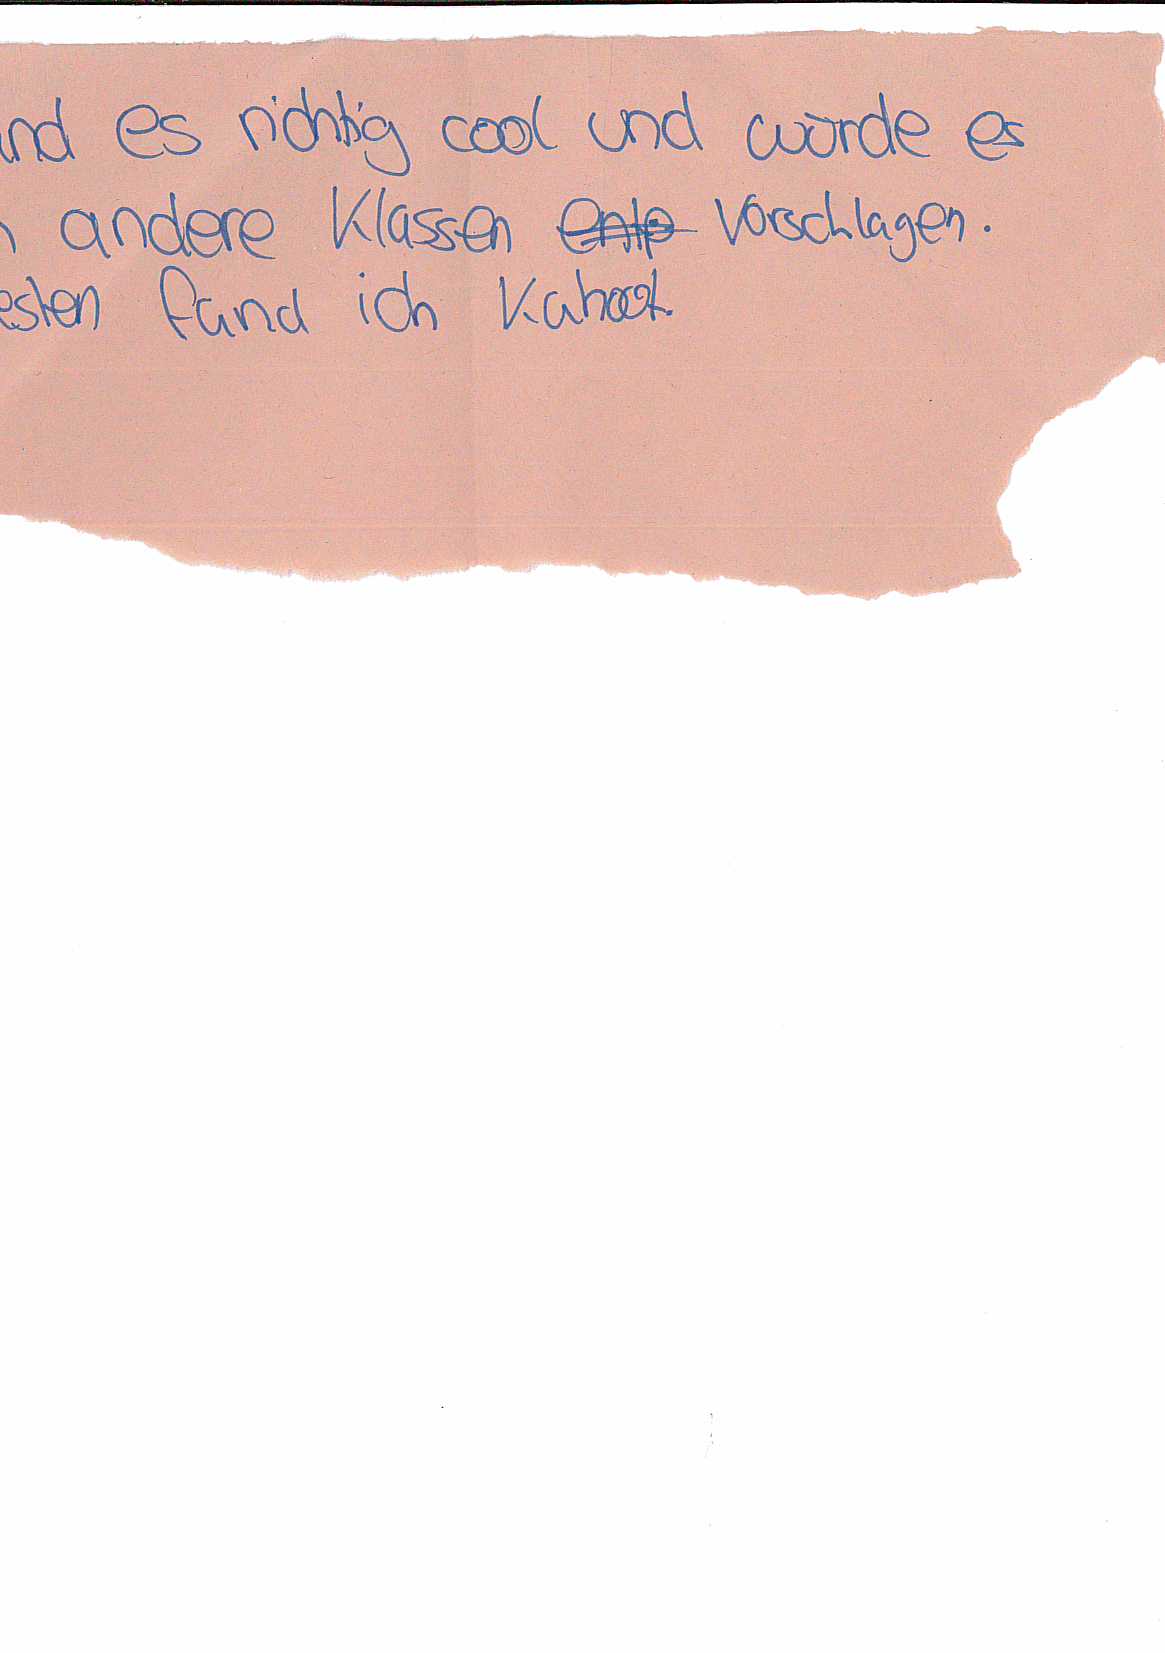 and es richtig cool und würde es
n andere Klassen vorschlagen.
esten fand ich Kahoot.